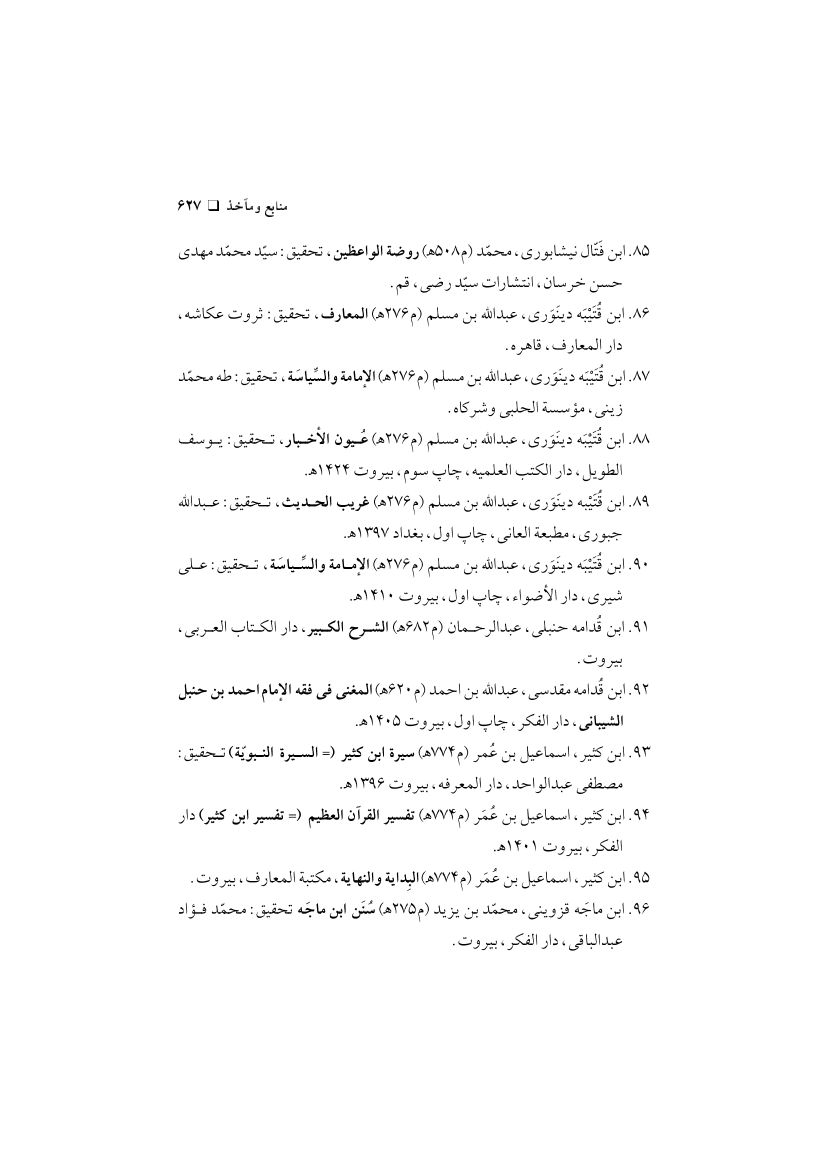 منابع ومآخذ ❑ ۶۲۷
۸۵. ابن فَتّال نیشابوری، محمّد (م۵۰۸ه‍) روضة الواعظین، تحقیق: سیّد محمّد مهدی
حسن خرسان، انتشارات سیّد رضی، قم.
۸۶. ابن قُتَیْبَه دینَوَری، عبدالله بن مسلم (م۲۷۶ه‍) المعارف، تحقیق: ثروت عکاشه،
دار المعارف، قاهره.
۸۷. ابن قُتَیْبَه دینَوَری، عبدالله بن مسلم (م۲۷۶ه‍) الإمامة والسِّیاسَة، تحقیق: طه محمّد
زینی، مؤسسة الحلبی وشرکاه.
۸۸. ابن قُتَیْبَه دینَوَری، عبدالله بن مسلم (م۲۷۶ه‍) عُـیون الأخـبار، تـحقیق: یـوسف
الطویل، دار الکتب العلمیه، چاپ سوم، بیروت ۱۴۲۴ه‍.
۸۹. ابن قُتَیْبه دینَوَری، عبدالله بن مسلم (م۲۷۶ه‍) غریب الحـدیث، تـحقیق: عـبدالله
جبوری، مطبعة العانی، چاپ اول، بغداد ۱۳۹۷ه‍.
۹۰. ابن قُتَیْبَه دینَوَری، عبدالله بن مسلم (م۲۷۶ه‍) الإمـامة والسِّـیاسَة، تـحقیق: عـلی
شیری، دار الأضواء، چاپ اول، بیروت ۱۴۱۰ه‍.
۹۱. ابن قُدامه حنبلی، عبدالرحـمان (م۶۸۲ه‍) الشـرح الکـبیر، دار الکـتاب العـربی،
بیروت.
۹۲. ابن قُدامه مقدسی، عبدالله بن احمد (م۶۲۰ه‍) المغنی فی فقه الإمام احمد بن حنبل
الشیبانی، دار الفکر، چاپ اول، بیروت ۱۴۰۵ه‍.
۹۳. ابن کثیر، اسماعیل بن عُمر (م۷۷۴ه‍) سیرة ابن کثیر (= السـیرة النـبویّة) تـحقیق:
مصطفی عبدالواحد، دار المعرفه، بیروت ۱۳۹۶ه‍.
۹۴. ابن کثیر، اسماعیل بن عُمَر (م۷۷۴ه‍) تفسیر القرآن العظیم (= تفسیر ابن کثیر) دار
الفکر، بیروت ۱۴۰۱ه‍.
۹۵. ابن کثیر، اسماعیل بن عُمَر (م۷۷۴ه‍) البِدایة والنهایة، مکتبة المعارف، بیروت.
۹۶. ابن ماجَه قزوینی، محمّد بن یزید (م۲۷۵ه‍) سُنَن ابن ماجَه تحقیق: محمّد فـؤاد
عبدالباقی، دار الفکر، بیروت.